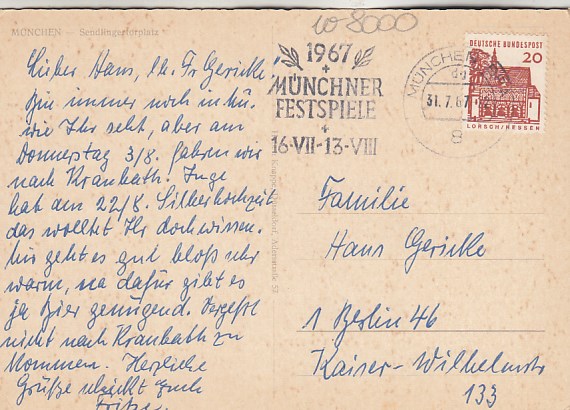 w-8000
MÜNCHEN — Sendlingertorplatz
Lieber Hans, lb. Fr Gericke!
Bin immer noch in Mü.
wie Ihr seht, aber am
Donnerstag 3/8. fahren wir
nach Kranbath. Inge
hat am 22/8. Silberhochzeit
das wolltet Ihr doch wissen.
Mir geht es gut bloß sehr
warm, na dafür gibt es
ja Bier genügend. Vergeßt
nicht nach Kranbath zu
kommen. Herzliche
Grüße schickt Euch
Fritze
1967
+
MÜNCHNER
FESTSPIELE
+
16·VII-13·VIII
MÜNCHEN
31.7.67
8
DEUTSCHE BUNDESPOST
20
LORSCH/HESSEN
Familie
Hans Gericke
1 Berlin 46
Kaiser-Wilhelmstr
133